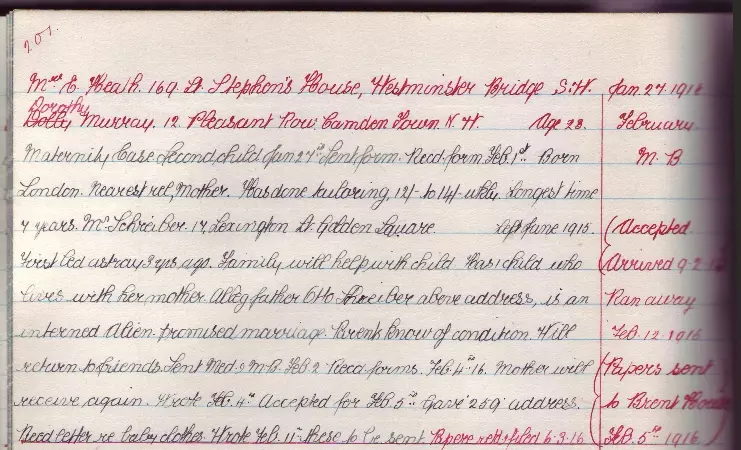 201.
Mrs E. Heath. 169. St. Stephen's House, Westminster Bridge S.W. Jan. 27. 191
Dorothy
Dolly Murray. 12 Pleasant Row, Camden Town N.W. Age 23. February
Maternity Case Second child Jan 27th Sent form. Recd. form Feb. 1st Born M. B
London. Nearest rel, Mother. Has done tailoring, 12/- to 14/- wkly. Longest time
7 years. Mr Schreiber. 17, Lexington St. Golden Square. Left June 1915. (Accepted
First led astray 3 yrs ago. Family will help with child Has 1 child who Arrived 9-2-
lives with her mother. Alleg father Otto Schreiber above address, is an Ran away
interned Alien. promised marriage. Parents know of condition. Will Feb. 12. 1916
return to friends. Sent Med & M.B. Feb. 2 Recd. forms. Feb. 4th 16. Mother will (Papers sent
receive again. Wrote Feb. 4th Accepted for Feb. 5th Gave 259 address. to Brent House
Recd letter re baby clothes. Wrote Feb. 11th these to be sent. Papers retd & filed 6.3.16 Feb. 5th 1916